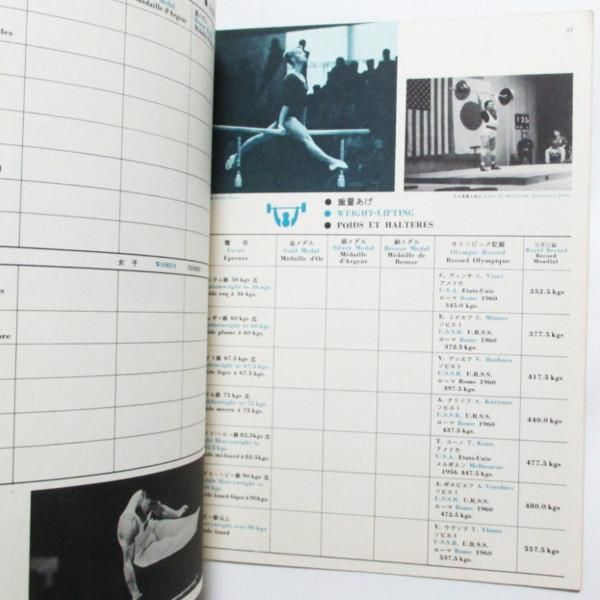 Médaille d'Argent
女子 WOMEN FEMMES
21
● 重量あげ
● WEIGHT-LIFTING
● POIDS ET HALTERES
種目 金メダル 銀メダル 銅メダル オリンピック記録 世界記録
Event Gold Medal Silver Medal Bronze Medal Olympic Record World Record
Epreuve Médaille d'Or Médaille d'Argent Médaille de Bronze Record Olympique Record Mondial
56 kgs 迄
56 kgs.
à 56 kgs.
C. ヴィンチ C. Vinci
アメリカ
U.S.A. Etats-Unis
ローマ Rome 1960
345.0 kgs.
352.5 kgs
60 kgs 迄
60 kgs.
plume à 60 kgs.
E. ミナエフ E. Minaev
ソビエト
U.S.S.R. U.R.S.S.
ローマ Rome 1960
372.5 kgs.
377.5 kgs
67.5 kgs 迄
to 67.5 kgs.
léger à 67.5 kgs.
V. ブシエフ V. Bushuev
ソビエト
U.S.S.R. U.R.S.S.
ローマ Rome 1960
397.5 kgs.
417.5 kgs
75 kgs 迄
to 75 kgs.
moyen à 75 kgs.
ソビエト
U.S.S.R. U.R.S.S.
ローマ Rome 1960
437.5 kgs.
440.0 kgs
ヘビー級 82.5kgs 迄
Heavyweight
to 82.5 kgs.
mi-lourd à 82.5kgs.
T. コーノ T. Kono
アメリカ
U.S.A. Etats-Unis
メルボルン Melbourne
1956 447.5 kgs.
477.5 kgs
ヘビー級 90 kgs 迄
Heavyweight
90 kgs.
lourd-léger à 90kgs.
A. ボロビエフ A. Vorobiev
ソビエト
U.S.S.R. U.R.S.S.
ローマ Rome 1960
472.5 kgs.
480.0 kgs
over 90 kgs.
lourd
Y. ウラソフ Y. Vlasov
ソビエト
U.S.S.R. U.R.S.S.
ローマ Rome 1960
537.5 kgs.
557.5 kgs